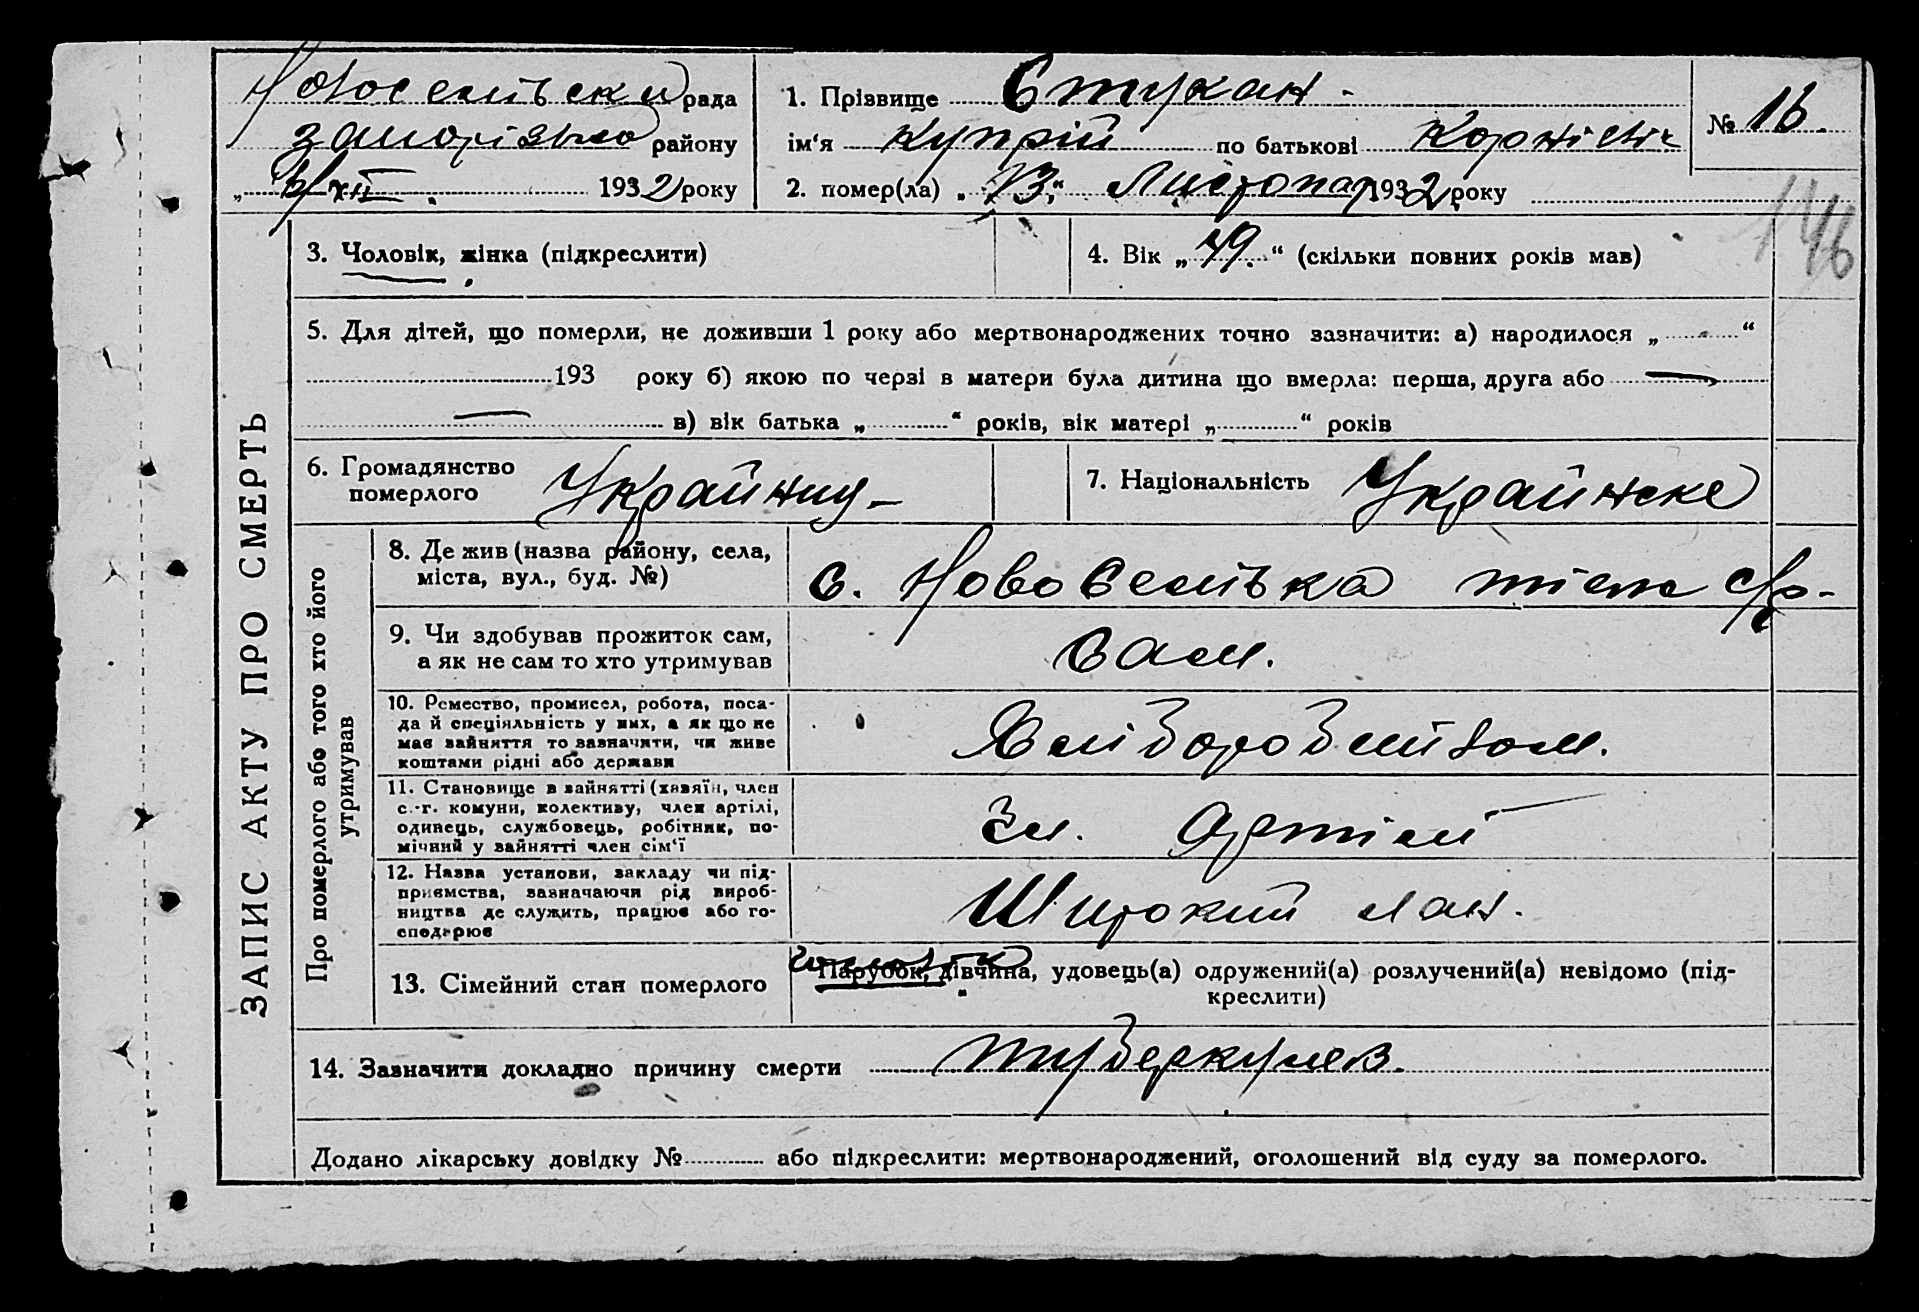 Новоселівська рада
Запорізького району
„6/XII. 1932 року
1. Прізвище Стукан
ім‘я Купрій по батькові Корнієвіч
2. помер(ла) „23“ Листопад 1932 року
№ 16.
146
ЗАПИС АКТУ ПРО СМЕРТЬ
3. Чоловік, жінка (підкреслити)
4. Вік „49.“ (скільки повних років мав)
5. Для дітей, що померли, не доживши 1 року або мертвонароджених точно зазначити: а) народилося „ “
193 року б) якою по черзі в матери була дитина що вмерла: перша, друга або —
— в) вік батька „ “ років, вік матері „ “ років
6. Громадянство
померлого
Українц-
7. Національність Українске
Про померлого або того хто його
утримував
8. Де жив (назва району, села,
міста, вул., буд. №)
с. Новоселівка
9. Чи здобував прожиток сам,
а як не сам то хто утримував
Сам.
10. Ремество, промисел, робота, поса-
да й спеціяльність у них, а як що не
має зайняття то зазначити, чи живе
коштами рідні або держави
Хліборобством.
11. Становище в зайнятті (хазяїн, член
с.-г. комуни, колективу, член артілі,
одинець, службовець, робітник, по-
мічний у зайнятті член сім‘ї
Чл. Артілі
12. Назва установи, закладу чи під-
приємства, зазначаючи рід вироб-
ництва де служить, працює або го-
сподарює
Широкий лан.
13. Сімейний стан померлого
Чоловік
Парубок, дівчина, удовець(а) одружений(а) розлучений(а) невідомо (під-
креслити)
14. Зазначити докладно причину смерти туберкульоз.
Додано лікарську довідку № або підкреслити: мертвонароджений, оголошений від суду за померлого.